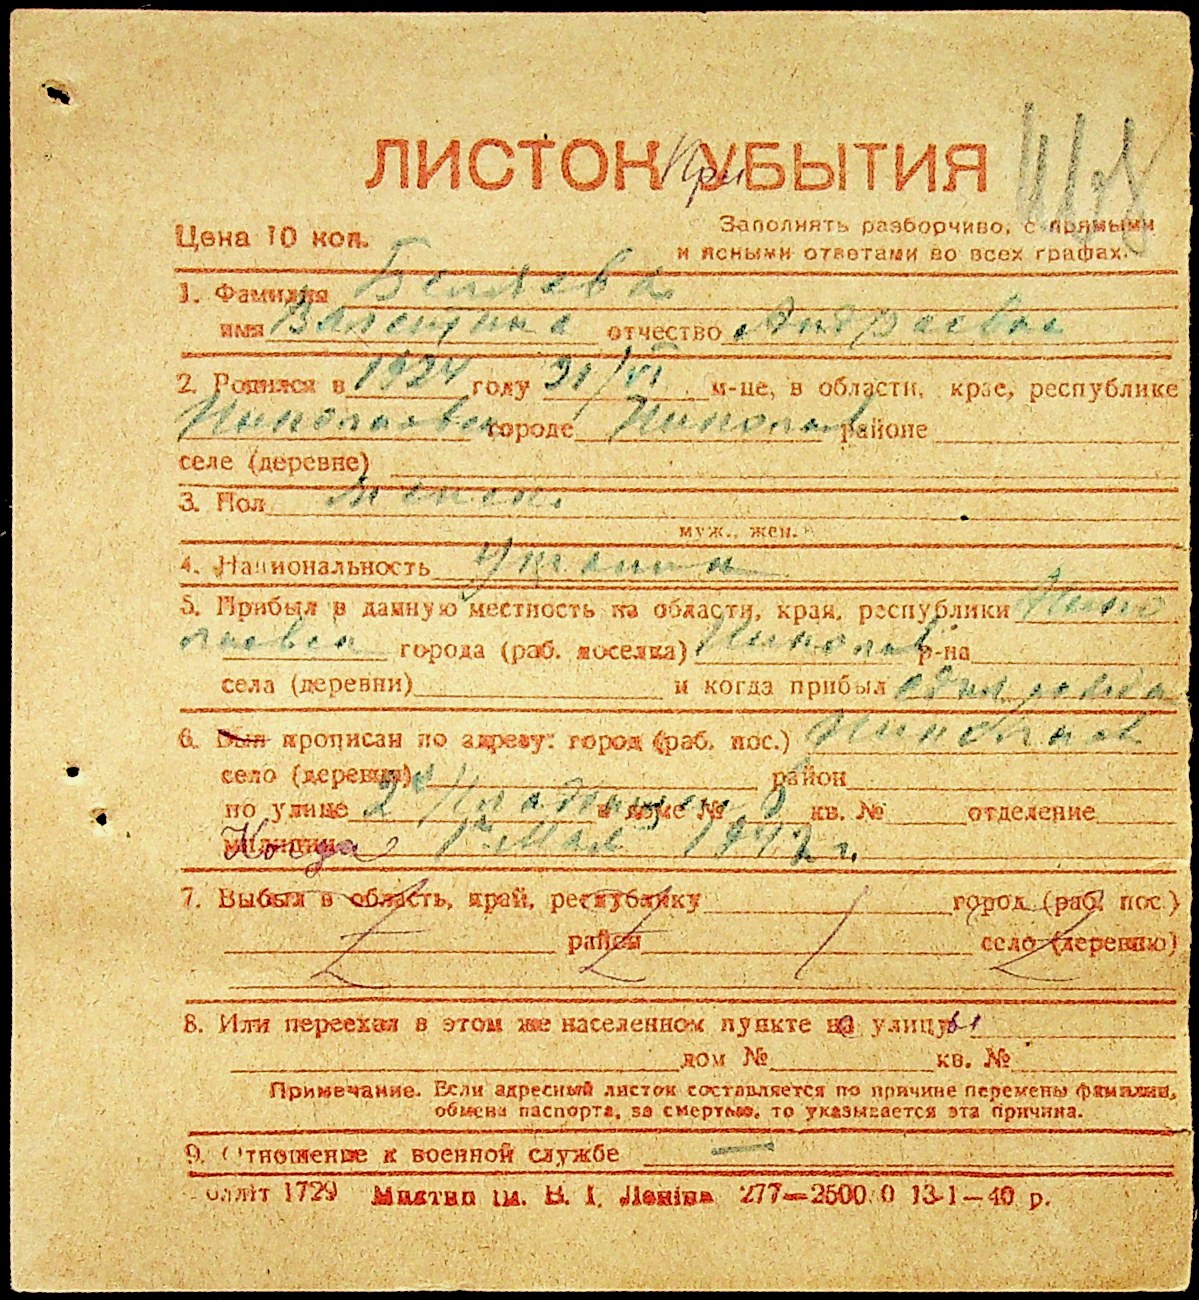 ЛИСТОК УБЫТИЯ
При
Цена 10 коп.
Заполнять разборчиво, с прямыми
и ясными ответами во всех графах.
1. Фамилия Беляева
имя Валентина отчество Андреевна
2. Родился в 1924 году 21/VI м-це, в области, крае, республике
Николаевск городе Николаев районе
селе (деревне)
3. Пол женск.
муж., жен.
4. Национальность Украинка
5. Прибыл в данную местность из области, края, республики Нико
лаевск города (раб. поселка) Николаев р-на
села (деревни) и когда прибыл
6. Был прописан по адресу: город (раб. пос.) Николаев
село (деревня) район
по улице 2 в доме № кв. № отделение
милиции Когда 1го Мая 1942 г.
7. Выбыл в область, край, республику город (раб. пос.)
район село (деревню)
8. Или переехал в этом же населенном пункте на улицу
дом № кв. №
Примечание. Если адресный листок составляется по причине перемены фамилии,
обмена паспорта, за смертью, то указывается эта причина.
9. Отношение к военной службе —
лліт 1729 Миктип ім. В. І. Леніна 277—2500.0 13-1—40 р.